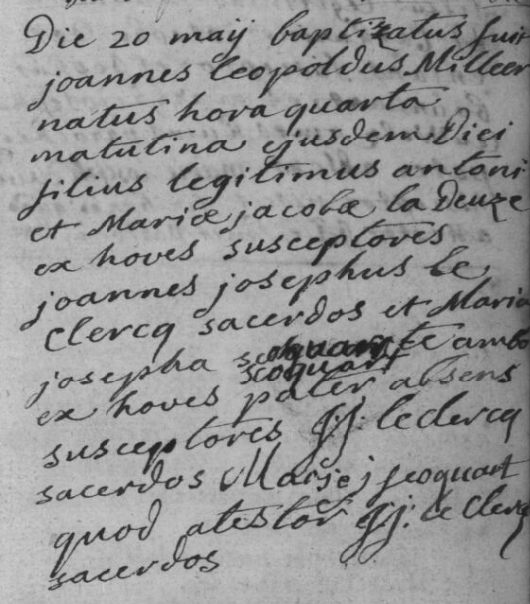 Die 20 maÿ baptizatus fuit
joannes leopoldus Milleer
natus hora quarta
matutina ejusdem Diei
filius legitimus antoni
et Mariæ jacobæ la Deuze
ex hoves susceptores
joannes josephus le
Clercq sacerdos et Maria
josepha scoquart ambo
ex hoves pater absens
susceptores J: j: leclercq
sacerdos Marie j scoquart
quod atestor J: j: le Clercq
sacerdos